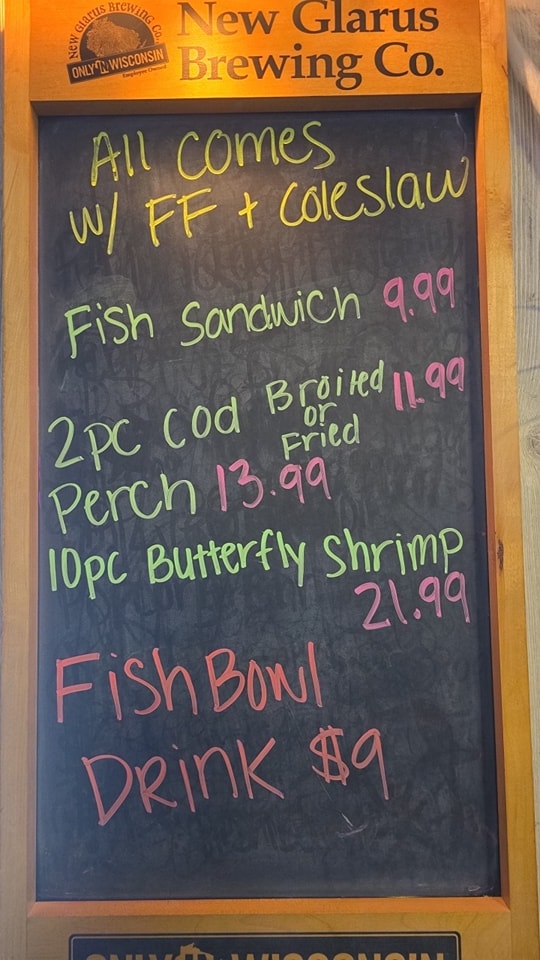 New Glarus Brewing Co.
ONLY IN WISCONSIN
Employee Owned
New Glarus
Brewing Co.
All comes
w/ FF + Coleslaw
Fish Sandwich 9.99
2pc Cod Broiled or Fried 11.99
Perch 13.99
10pc Butterfly Shrimp
21.99
Fish Bowl
Drink $9
ONLY IN WISCONSIN